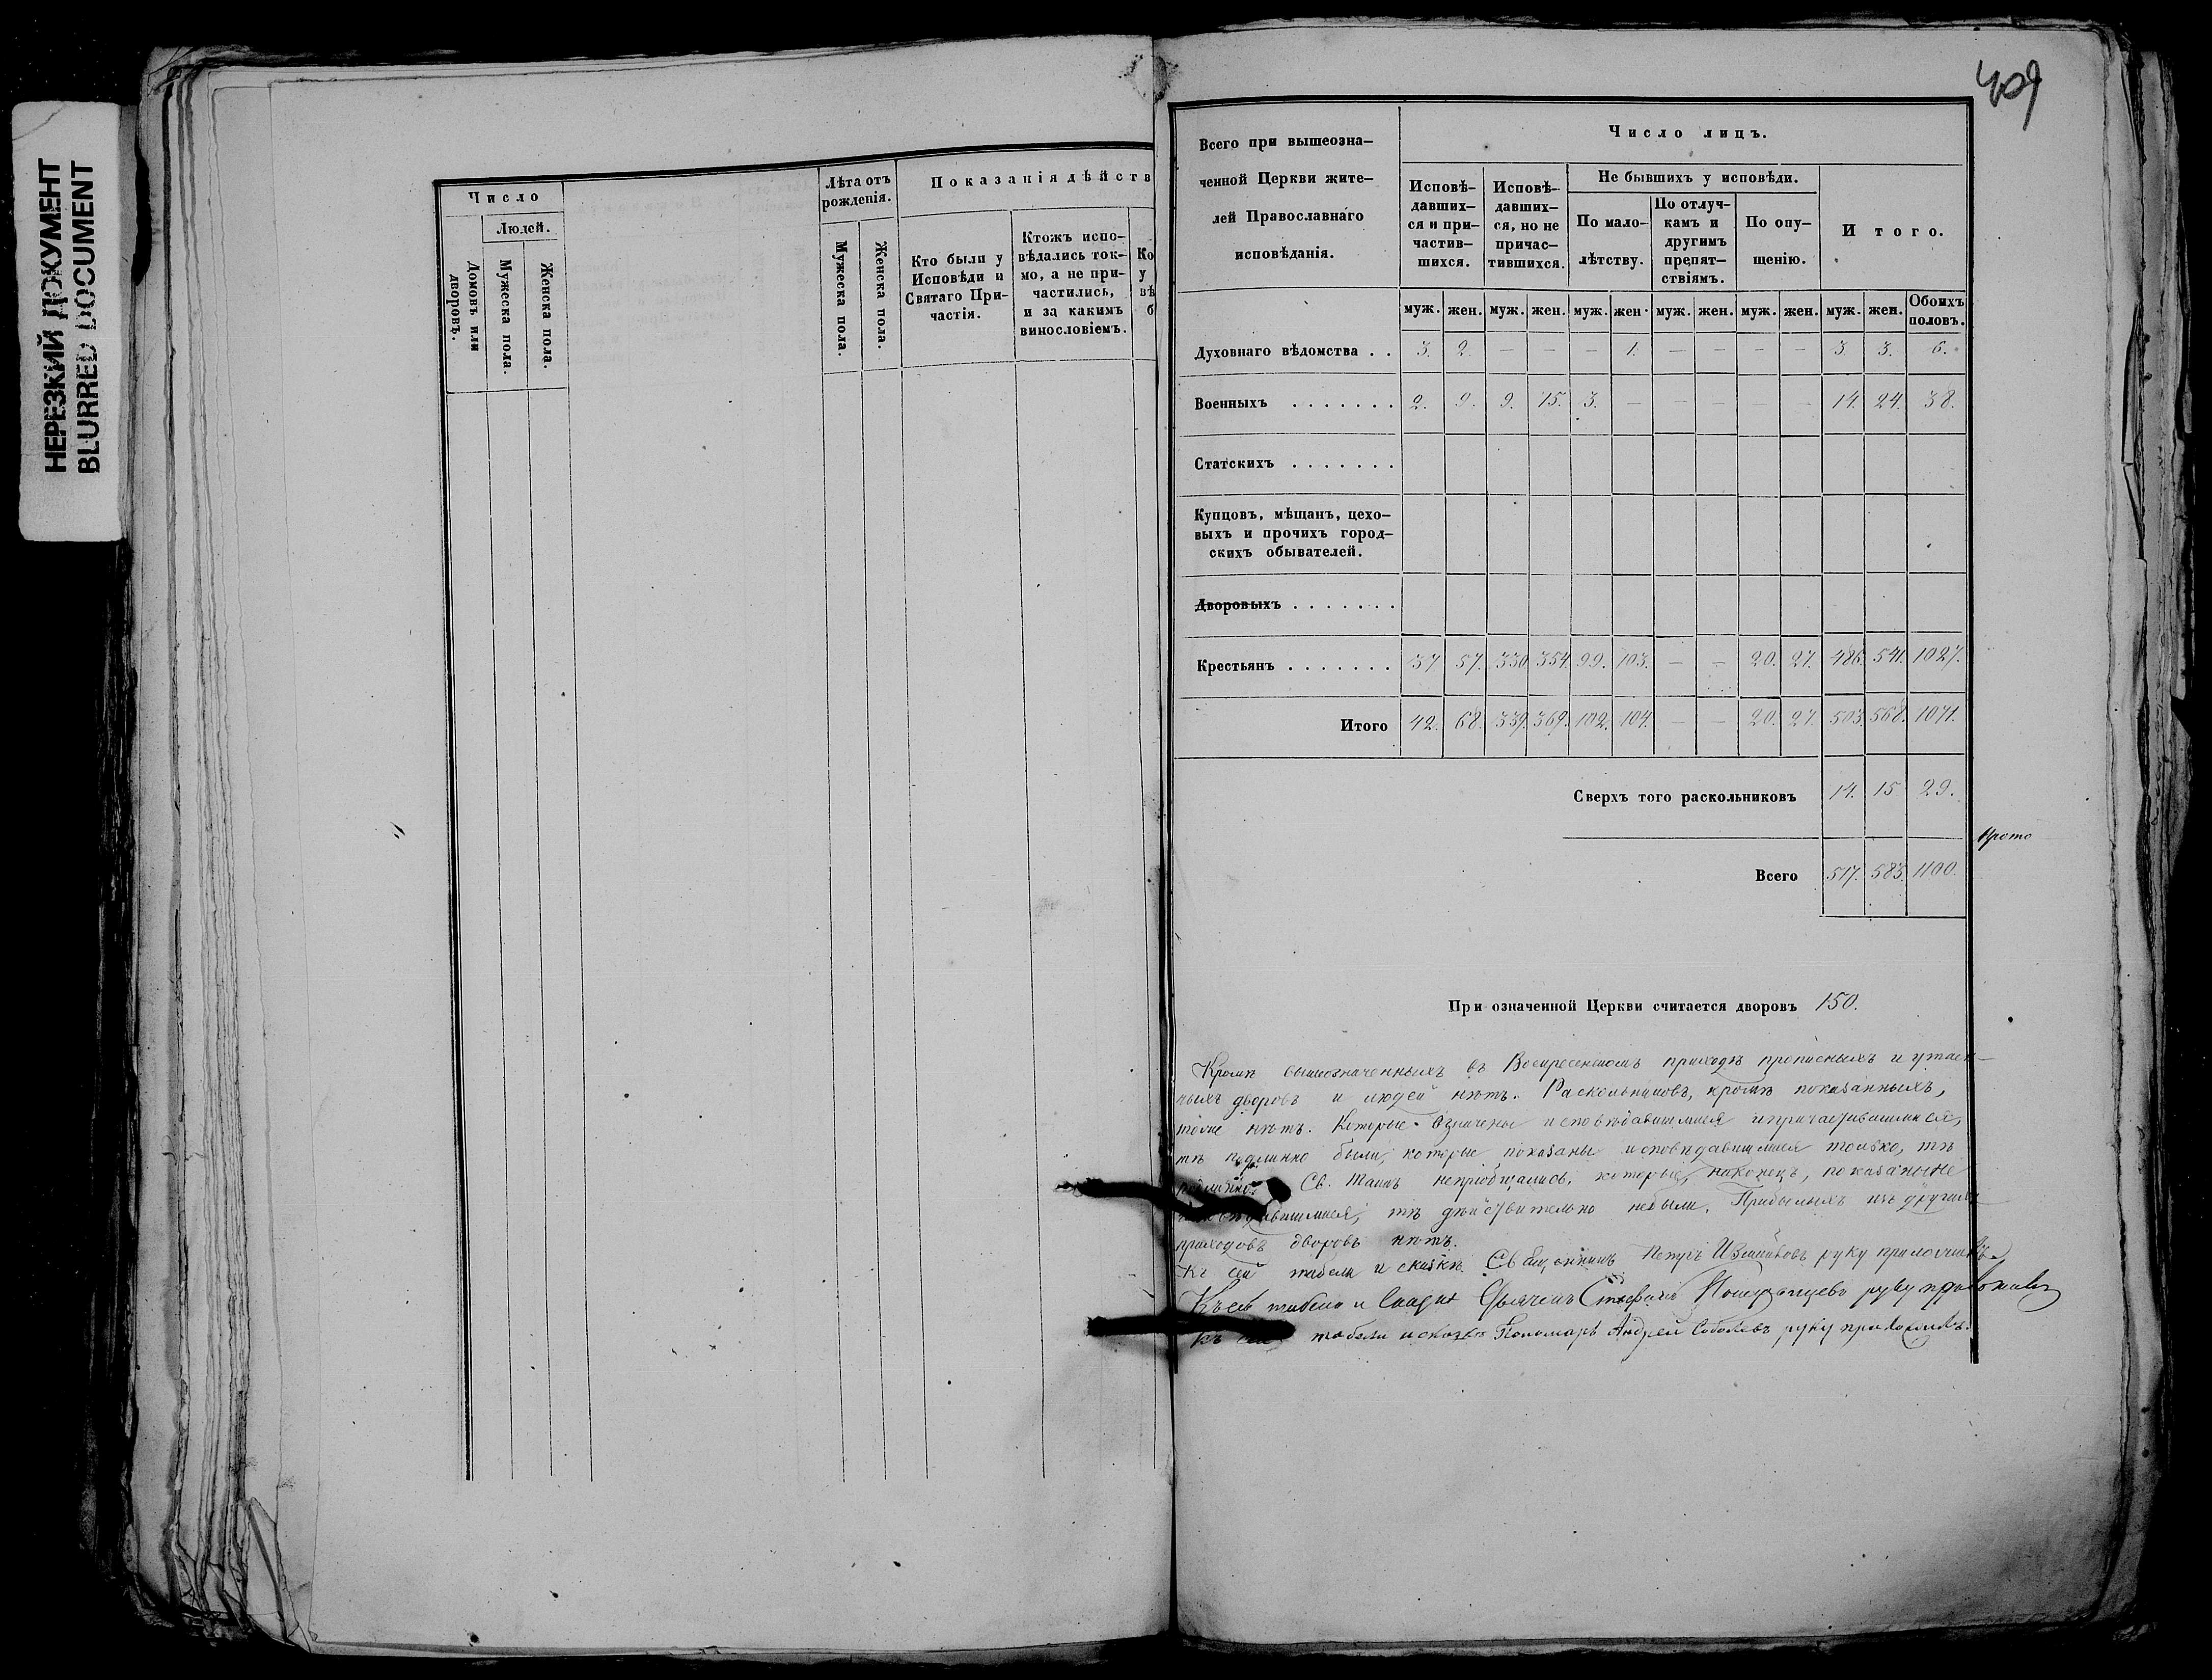 НЕРЕЗКИЙ ДОКУМЕНТ
BLURRED DOCUMENT
Число
Людей.
Домовъ или дворовъ.
Мужеска пола.
Женска пола.
Лѣта отъ рожденія.
Мужеска пола.
Женска пола.
Показанія дѣйств
Кто были у
Исповѣди и
Святаго При-
частія.
Ктожъ испо-
вѣдались ток-
мо, а не при-
частились,
и за какимъ
винословіемъ.
Ко
у
вѣ
б
409
Всего при вышеозна-
ченной Церкви жите-
лей Православнаго
исповѣданія.
Число лицъ.
Исповѣ-
давших-
ся и при-
частив-
шихся.
Исповѣ-
давших-
ся, но не
причас-
тившихся.
Не бывшихъ у исповѣди.
По мало-
лѣтству.
По отлуч-
камъ и
другимъ
препят-
ствіямъ.
По опу-
щенію.
Итого.
муж. жен. муж. жен. муж. жен. муж. жен. муж. жен. муж. жен. Обоихъ половъ.
Духовнаго вѣдомства . . 3. 2. — — — 1. — — — — 3 3. 6.
Военныхъ . . . . . . . 2. 9. 9. 15. 3. — — — — — 14. 24. 38.
Статскихъ . . . . . . .
Купцовъ, мѣщанъ, цехо-
выхъ и прочихъ город-
скихъ обывателей.
Дворовыхъ . . . . . . .
Крестьянъ . . . . . . . 37 57. 330 354. 99. 103. — — 20. 27. 486. 541. 1027.
Итого 42. 68. 339. 369. 102. 104. — — 20. 27. 503. 568. 1071.
Сверхъ того раскольниковъ 14. 15 29.
Всего 517. 583. 1100.
При означенной Церкви считается дворовъ 150.
Кромѣ вышеозначенныхъ въ Воскресенскомъ приходѣ прописныхъ и утаен-
ныхъ дворовъ и людей нѣтъ. Раскольниковъ, кромѣ показанныхъ,
тоже нѣтъ. Которые означены исповѣдавшимися и причастившимися,
тѣ подлинно были, которые показаны исповѣдавшимися только, тѣ
подлинно Св. Таинъ непріобщались, которые, наконецъ, показаны не
исповѣдавшимися, тѣ дѣйствительно небыли. Прибылыхъ изъ другихъ
приходовъ дворовъ нѣтъ.
Къ сей табели и сказкѣ Священникъ Петръ руку приложилъ.
Къ сей табели и сказкѣ Дьячекъ Стефанъ руку приложилъ
Къ сей табели и сказкѣ Пономарь Андрей Соболевъ руку приложилъ.